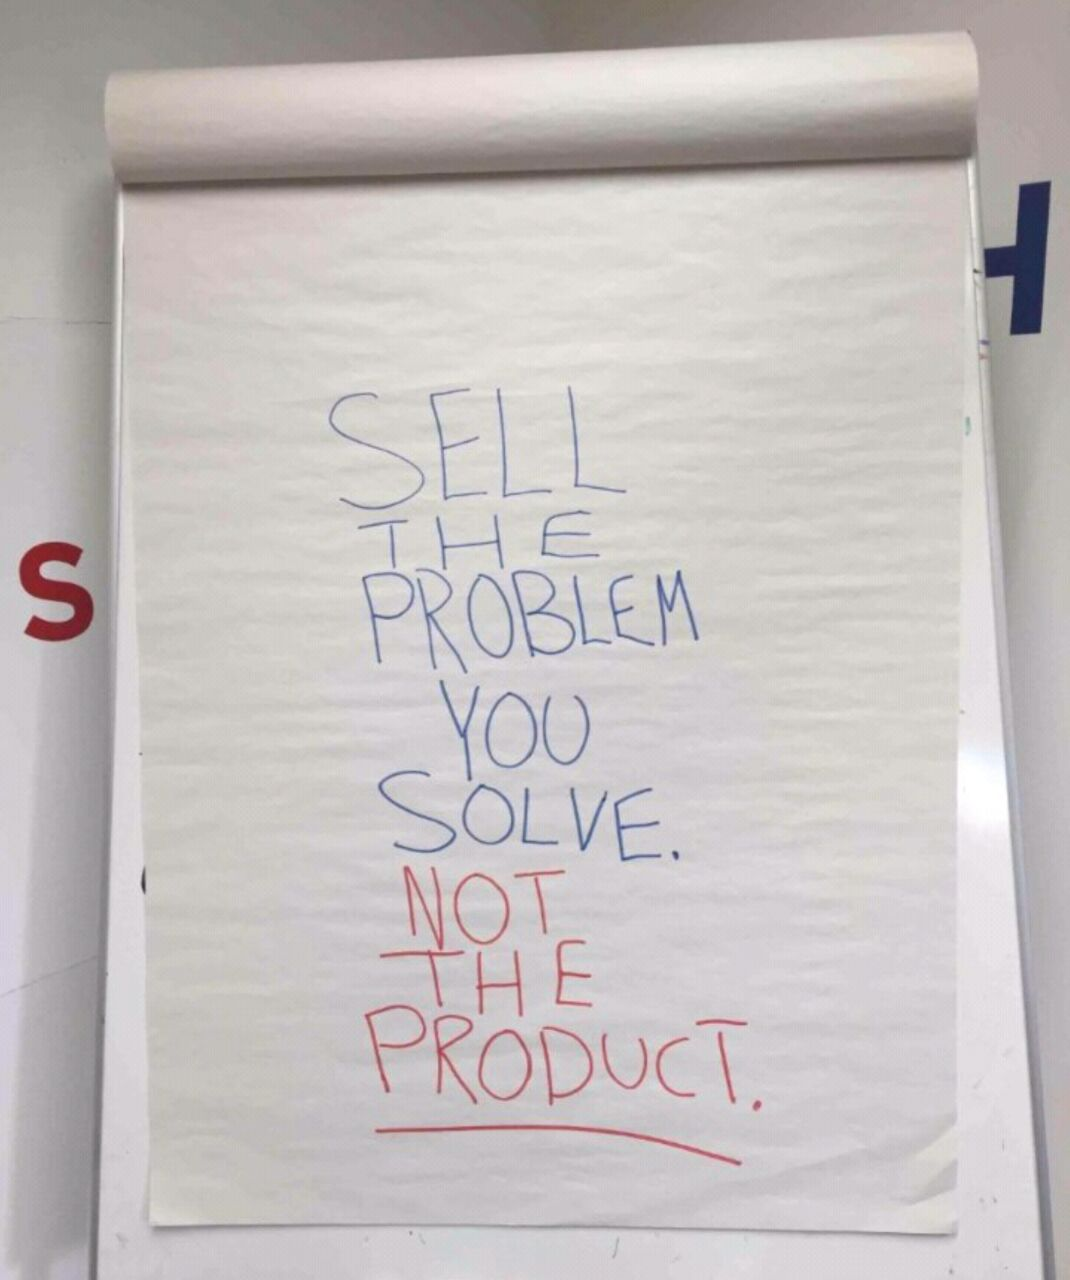 SELL
THE
PROBLEM
YOU
SOLVE.
NOT
THE
PRODUCT.
S
H